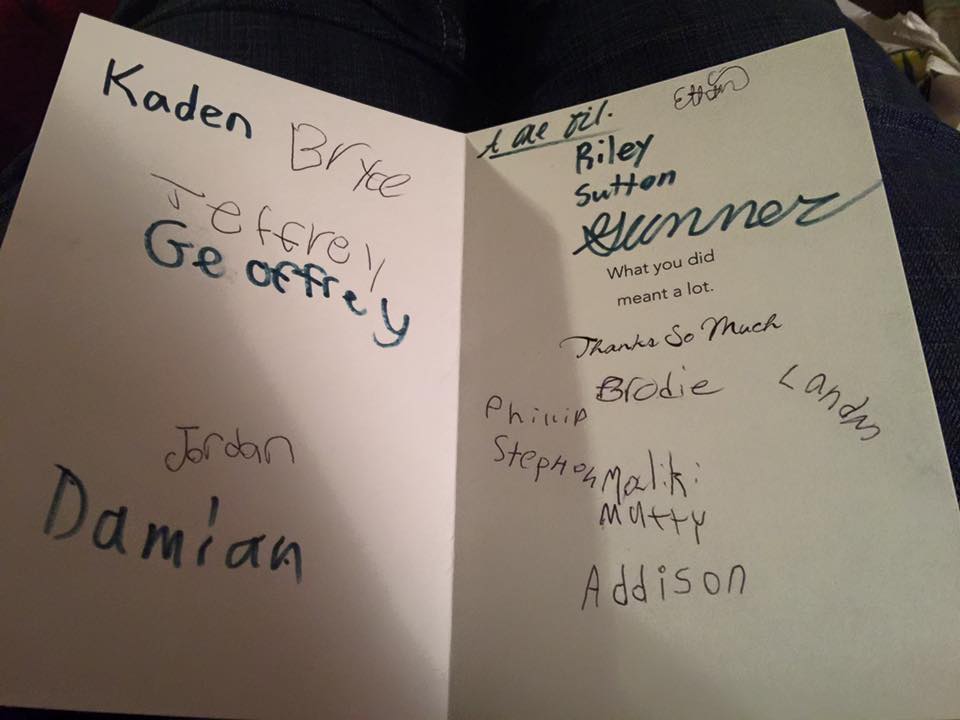 Kaden
Bryce
Jeffrey
Geoffrey
Jordan
Damian
Ethan
Riley
Sutton
Gunner
What you did
meant a lot.
Thanks So Much
Brodie
Landon
Phillip
Stephon
Maliki
Mutty
Addison